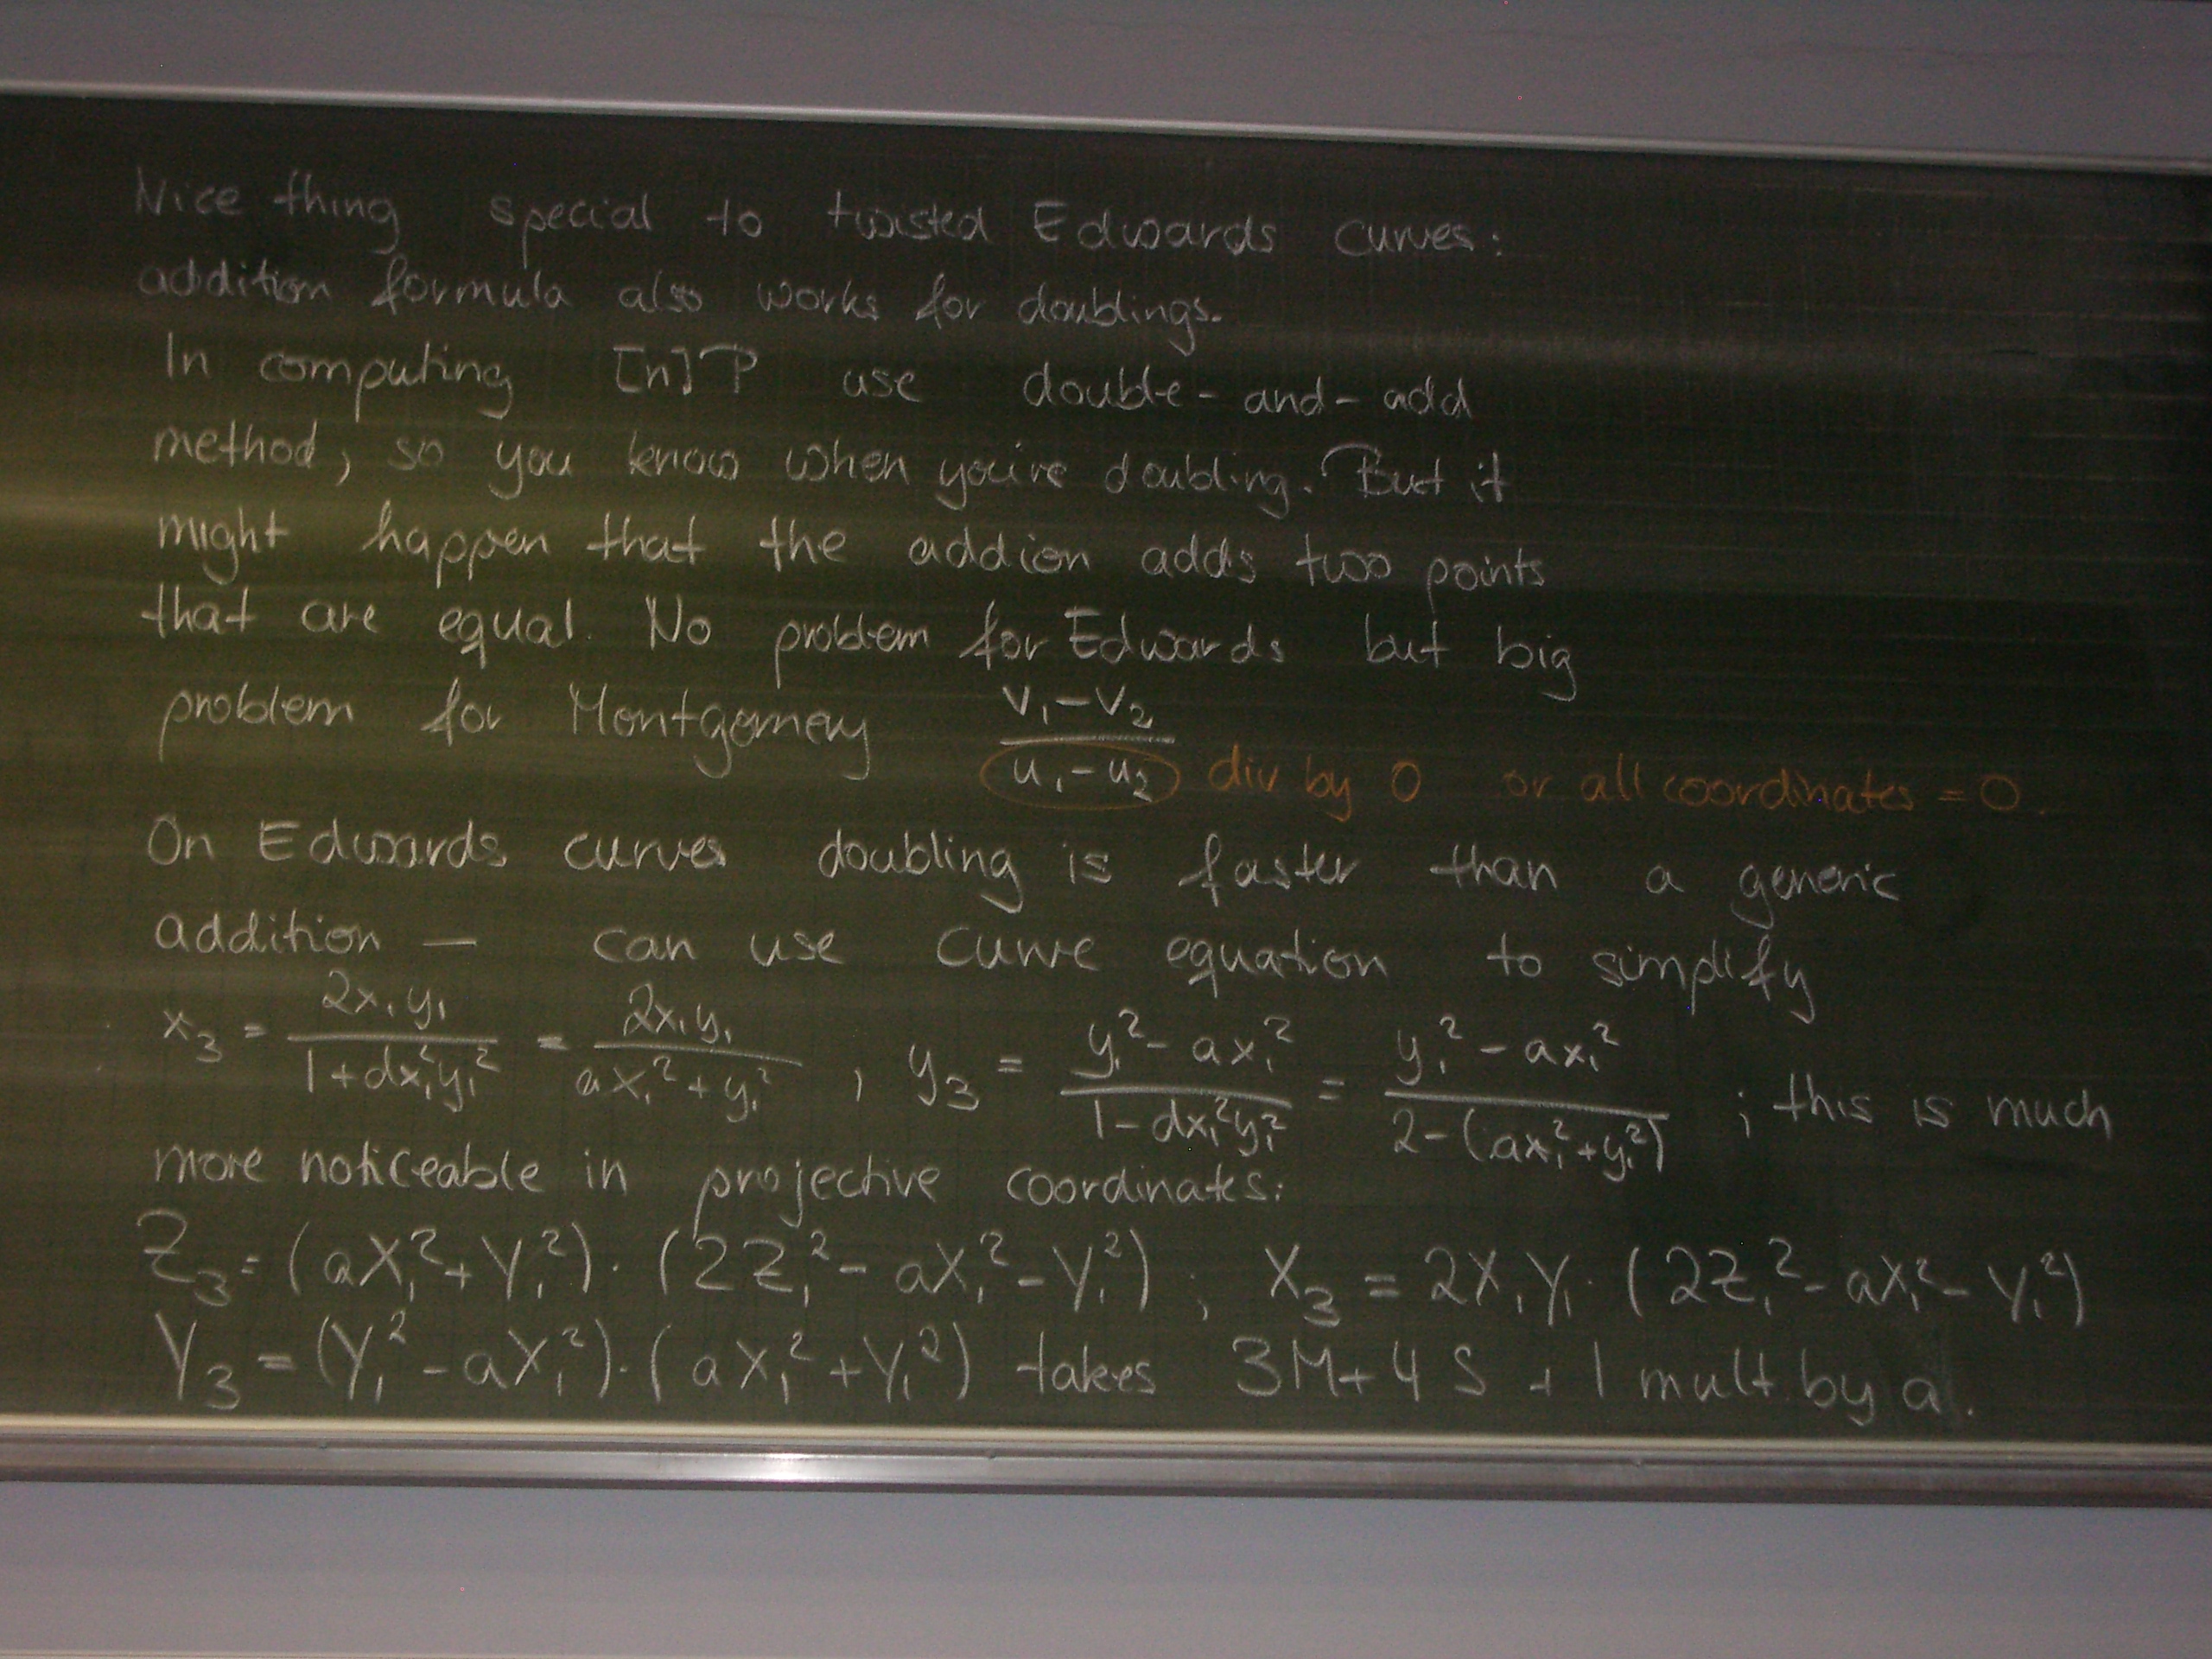 Nice thing special to twisted Edwards curves:
addition formula also works for doublings.
In computing [n]P use double-and-add
method, so you know when you're doubling. But it
might happen that the addion adds two points
that are equal. No problem for Edwards but big
problem for Montgomery (v₁-v₂)/(u₁-u₂) div by 0 or all coordinates = 0.
On Edwards curves doubling is faster than a generic
addition — can use curve equation to simplify
x₃ = 2x₁y₁/(1+dx₁²y₁²) = 2x₁y₁/(ax₁²+y₁²), y₃ = (y₁²-ax₁²)/(1-dx₁²y₁²) = (y₁²-ax₁²)/(2-(ax₁²+y₁²)) ; this is much
more noticeable in projective coordinates:
Z₃ = (aX₁²+Y₁²)·(2Z₁²-aX₁²-Y₁²) ; X₃ = 2X₁Y₁·(2Z₁²-aX₁²-Y₁²)
Y₃ = (Y₁²-aX₁²)·(aX₁²+Y₁²) takes 3M+4S+1 mult. by a.